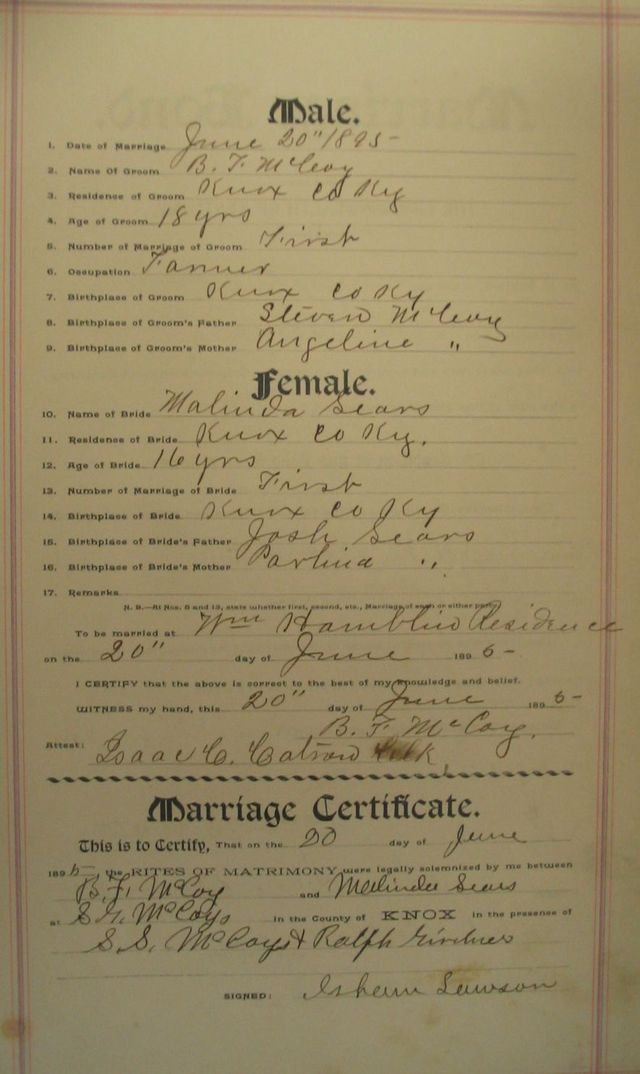 Male.
1. Date of Marriage June 20" 1895-
2. Name Of Groom B. F. McCoy
3. Residence of Groom Knox Co Ky
4. Age of Groom 18 yrs
5. Number of Marriage of Groom First
6. Occupation Farmer
7. Birthplace of Groom Knox Co Ky
8. Birthplace of Groom's Father Steven McCoy
9. Birthplace of Groom's Mother Angeline "
Female.
10. Name of Bride Malinda Sears
11. Residence of Bride Knox Co Ky.
12. Age of Bride 16 yrs
13. Number of Marriage of Bride First
14. Birthplace of Bride Knox Co Ky
15. Birthplace of Bride's Father Josh Sears
16. Birthplace of Bride's Mother Parlina "
17. Remarks
N. B.—At Nos. 5 and 13, state whether first, second, etc., Marriage of each or either party.
To be married at Wm Hamblin Residence
on the 20" day of June 1895-
I CERTIFY that the above is correct to the best of my knowledge and belief.
WITNESS my hand, this 20" day of June 1895-
B. F. McCoy.
Attest: Isaac C. Catron Clk
Marriage Certificate.
This is to Certify, That on the 20 day of June
1895, the RITES OF MATRIMONY were legally solemnized by me between
B. F. McCoy and Malinda Sears
at McCoys in the County of KNOX in the presence of
S. S. McCoy & Ralph Girdner
SIGNED: Isham Lawson